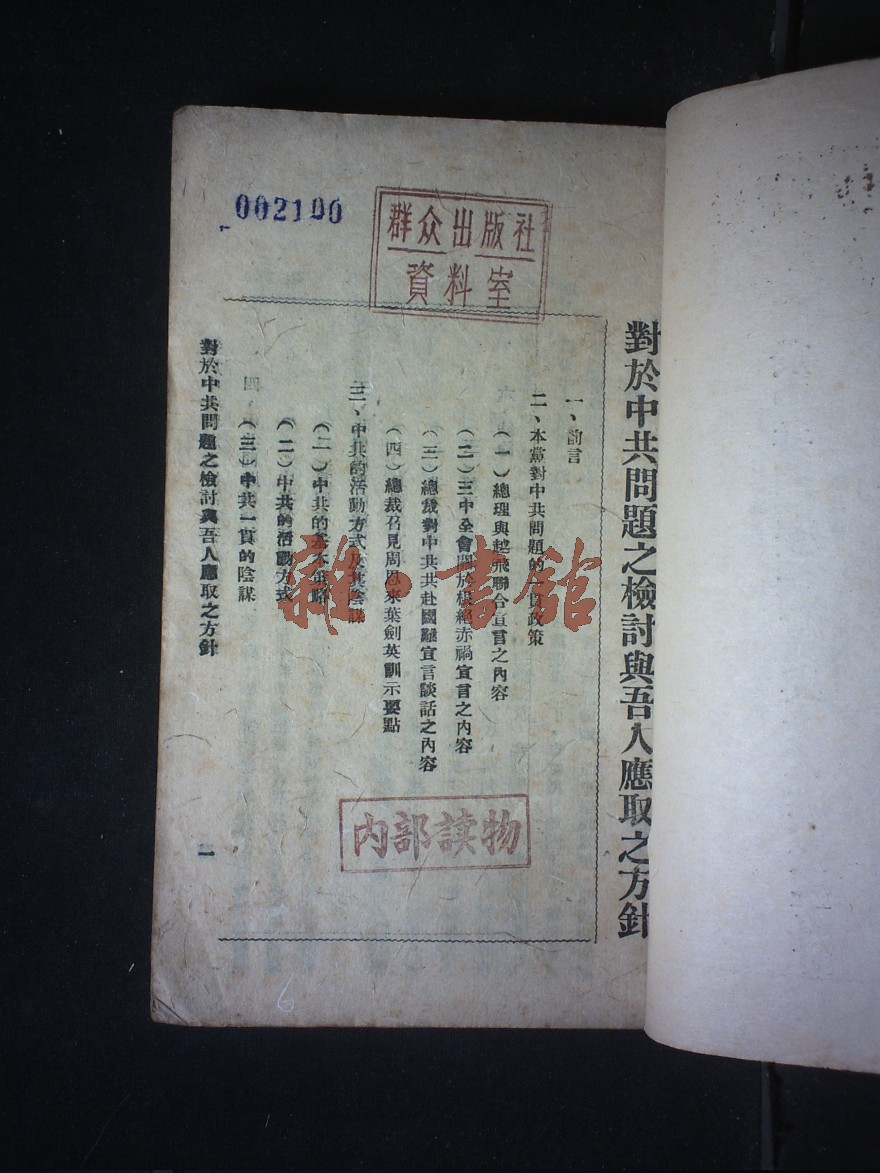 002100
群众出版社
資料室
對於中共問題之檢討與吾人應取之方針
一、前言
二、本黨對中共問題的一貫政策
（一）總理與越飛聯合宣言之內容
（二）三中全會關於根絕赤禍宣言之內容
（三）總裁對中共共赴國難宣言談話之內容
（四）總裁召見周恩來葉劍英訓示要點
三、中共的活動方式及其陰謀
（一）中共的基本策略
（二）中共的活動方式
（三）中共一貫的陰謀
對於中共問題之檢討與吾人應取之方針
一
内部读物
雜·書館
6